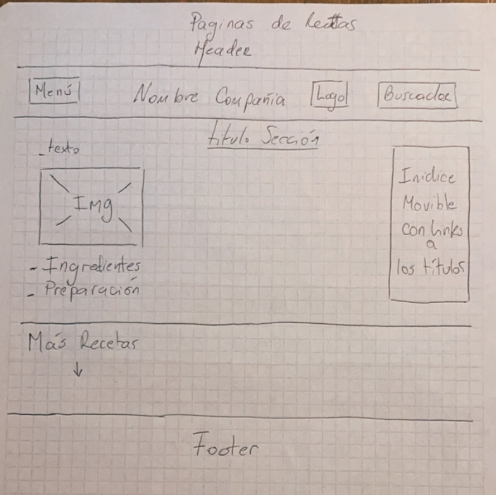 Paginas de Recetas
Header
Menú
Nombre Compañia
Logo
Buscador
titulo Sección
- texto
Img
- Ingredientes
- Preparación
Inidice
Movible
con links
a
los títulos
Más Recetas
Footer